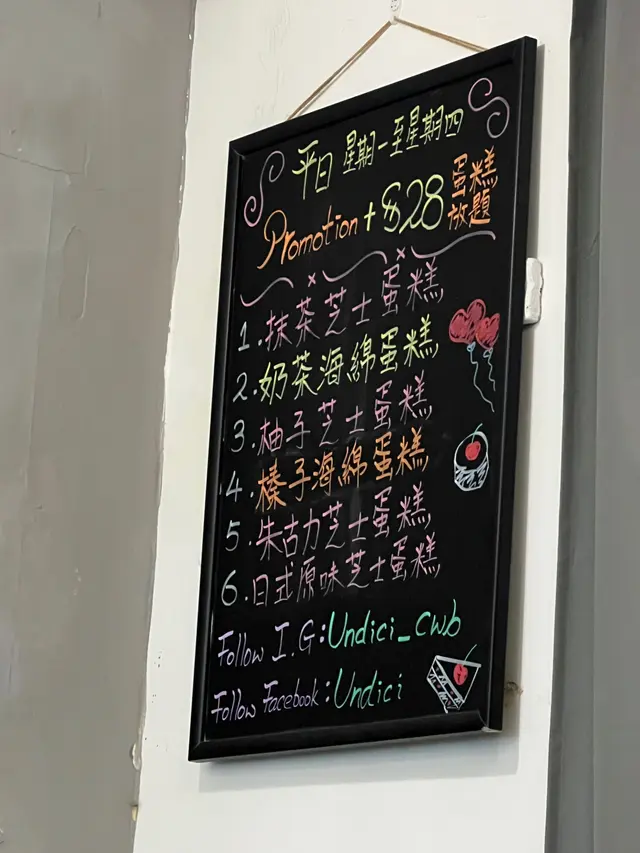 平日 星期一至星期四
Promotion + $28 蛋糕放題
1. 抹茶芝士蛋糕
2. 奶茶海綿蛋糕
3. 柚子芝士蛋糕
4. 榛子海綿蛋糕
5. 朱古力芝士蛋糕
6. 日式原味芝士蛋糕
Follow I.G: Undici_cwb
Follow Facebook: Undici